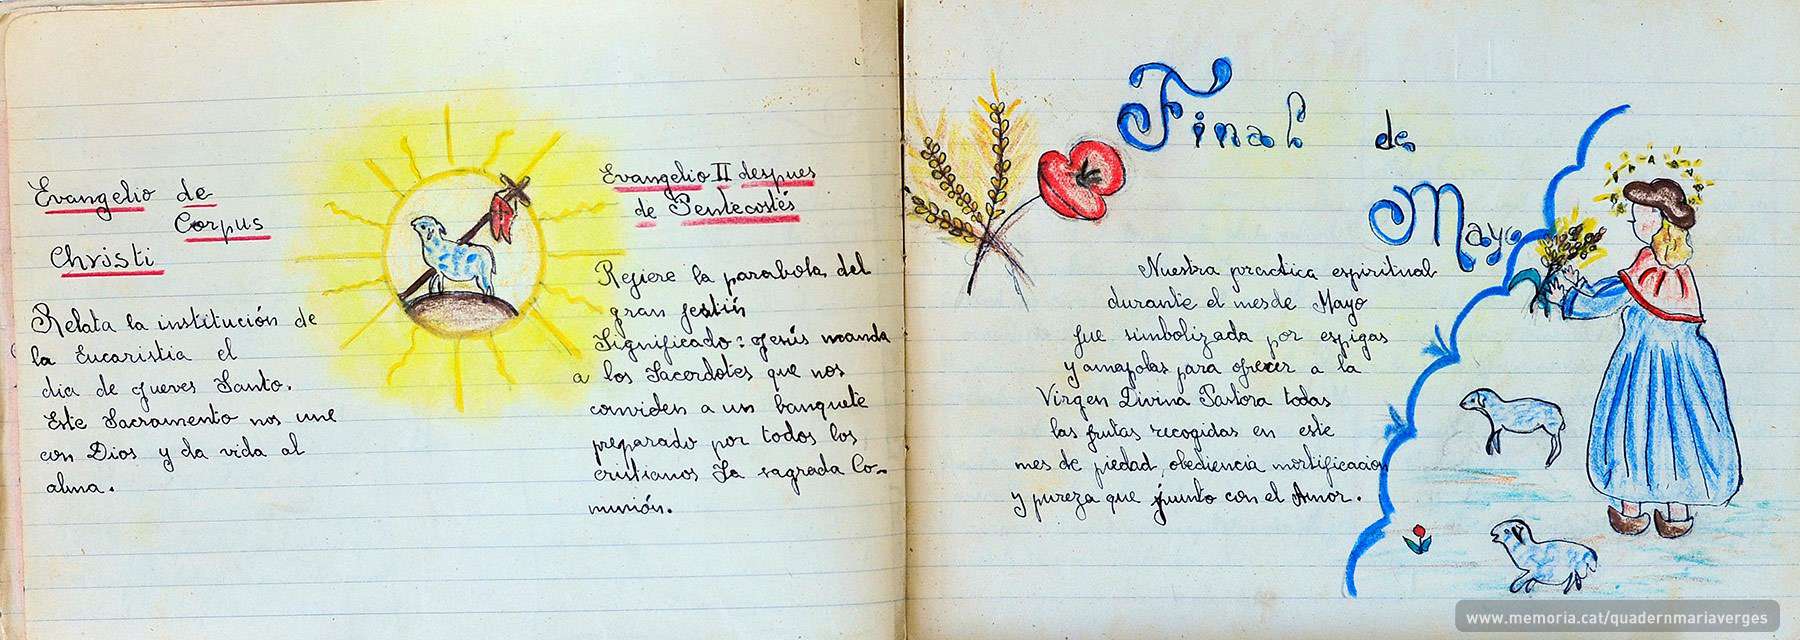 Evangelio de
Corpus
Christi
Relata la institución de
la Eucaristia el
dia de Jueves Santo.
Este Sacramento nos une
con Dios y da vida al
alma.
Evangelio II despues
de Pentecostés
Refiere la parabola del
gran festín
Significado: Jesús manda
a los Sacerdotes que nos
conviden a un banquete
preparado por todos los
cristianos La sagrada Co-
munión.
Final de
Mayo
Nuestra practica espiritual
durante el mes de Mayo
fue simbolizada por espigas
y amapolas para ofrecer a la
Virgen Divina Pastora todas
las frutas recogidas en este
mes de piedad, obediencia mortificacion
y pureza que junto con el Amor.
www.memoria.cat/quadernmariaverges